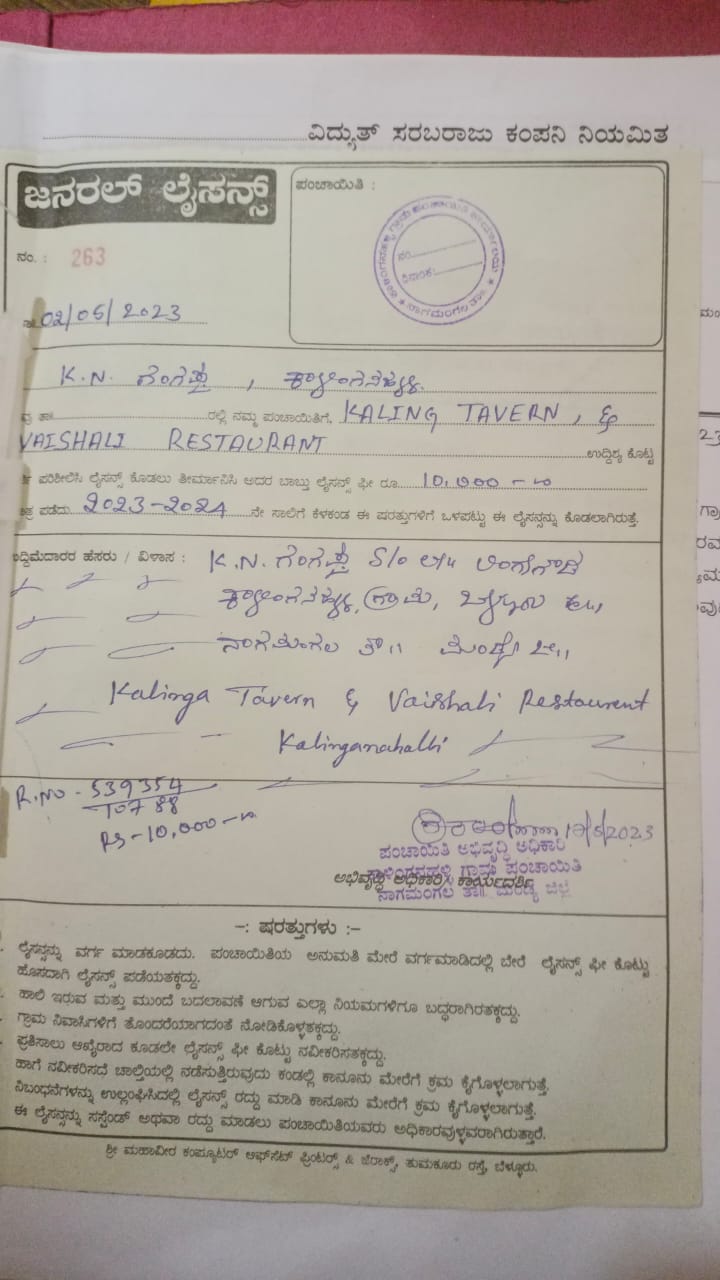 ವಿದ್ಯುತ್ ಸರಬರಾಜು ಕಂಪನಿ ನಿಯಮಿತ
ಜನರಲ್ ಲೈಸನ್ಸ್
ಪಂಚಾಯಿತಿ :
ಗ್ರಾಮ ಪಂಚಾಯಿತಿ
ನಂ.
ದಿನಾಂಕ:
ನಾಗಮಂಗಲ ತಾ.
ನಂ. : 263
02/05/2023
K.N. ಗಂಗೆಪ್ಪ,
ರಲ್ಲಿ ನಮ್ಮ ಪಂಚಾಯಿತಿಗೆ, KALING TAVERN, &
VAISHALI RESTAURANT ಉದ್ದಿಶ್ಯ ಕೊಟ್ಟ
ಪರಿಶೀಲಿಸಿ ಲೈಸನ್ಸ್ ಕೊಡಲು ತೀರ್ಮಾನಿಸಿ ಅದರ ಬಾಬ್ತು ಲೈಸನ್ಸ್ ಫೀ ರೂ. 10,000-00
ಪಡೆದು. 2023-2024 ನೇ ಸಾಲಿಗೆ ಕೆಳಕಂಡ ಈ ಷರತ್ತುಗಳಿಗೆ ಒಳಪಟ್ಟು ಈ ಲೈಸನ್ಸನ್ನು ಕೊಡಲಾಗಿರುತ್ತೆ.
ಉದ್ದಿಮೆದಾರರ ಹೆಸರು / ವಿಳಾಸ : K.N. ಗಂಗೆಪ್ಪ S/o ಲಿಂಗೇಗೌಡ
ಗ್ರಾಮ,
ನಾಗಮಂಗಲ ತಾ|| ಮಂಡ್ಯ ಜಿ||
Kalinga Tavern & Vaishali Restourent
Kalinganahalli
R.NO - 539354
10788
Rs - 10,000-00
ಪಂಚಾಯಿತಿ ಅಭಿವೃದ್ಧಿ ಅಧಿಕಾರಿ
ಗ್ರಾಮ ಪಂಚಾಯಿತಿ
ಅಭಿವೃದ್ಧಿ ಅಧಿಕಾರಿ / ಕಾರ್ಯದರ್ಶಿ
ನಾಗಮಂಗಲ ತಾ|| ಮಂಡ್ಯ ಜಿಲ್ಲೆ
-: ಷರತ್ತುಗಳು :-
ಲೈಸನ್ಸನ್ನು ವರ್ಗ ಮಾಡಕೂಡದು. ಪಂಚಾಯಿತಿಯ ಅನುಮತಿ ಮೇರೆ ವರ್ಗಮಾಡಿದಲ್ಲಿ ಬೇರೆ ಲೈಸನ್ಸ್ ಫೀ ಕೊಟ್ಟು
ಹೊಸದಾಗಿ ಲೈಸನ್ಸ್ ಪಡೆಯತಕ್ಕದ್ದು.
ಹಾಲಿ ಇರುವ ಮತ್ತು ಮುಂದೆ ಬದಲಾವಣೆ ಆಗುವ ಎಲ್ಲಾ ನಿಯಮಗಳಿಗೂ ಬದ್ಧರಾಗಿರತಕ್ಕದ್ದು.
ಗ್ರಾಮ ನಿವಾಸಿಗಳಿಗೆ ತೊಂದರೆಯಾಗದಂತೆ ನೋಡಿಕೊಳ್ಳತಕ್ಕದ್ದು.
ಪ್ರತಿಸಾಲು ಆಖೈರಾದ ಕೂಡಲೇ ಲೈಸನ್ಸ್ ಫೀ ಕೊಟ್ಟು ನವೀಕರಿಸತಕ್ಕದ್ದು.
ಹಾಗೆ ನವೀಕರಿಸದೆ ಚಾಲ್ತಿಯಲ್ಲಿ ನಡೆಸುತ್ತಿರುವುದು ಕಂಡಲ್ಲಿ ಕಾನೂನು ಮೇರೆಗೆ ಕ್ರಮ ಕೈಗೊಳ್ಳಲಾಗುತ್ತೆ.
ನಿಬಂಧನೆಗಳನ್ನು ಉಲ್ಲಂಘಿಸಿದಲ್ಲಿ ಲೈಸನ್ಸ್ ರದ್ದು ಮಾಡಿ ಕಾನೂನು ಮೇರೆಗೆ ಕ್ರಮ ಕೈಗೊಳ್ಳಲಾಗುತ್ತೆ.
ಈ ಲೈಸನ್ಸನ್ನು ಸಸ್ಪೆಂಡ್ ಅಥವಾ ರದ್ದು ಮಾಡಲು ಪಂಚಾಯಿತಿಯವರು ಅಧಿಕಾರವುಳ್ಳವರಾಗಿರುತ್ತಾರೆ.
ಶ್ರೀ ಮಹಾವೀರ ಕಂಪ್ಯೂಟರ್ ಆಫ್‌ಸೆಟ್ ಪ್ರಿಂಟರ್ಸ್ & ಜೆರಾಕ್ಸ್, ತುಮಕೂರು ರಸ್ತೆ, ಬೆಳ್ಳೂರು.